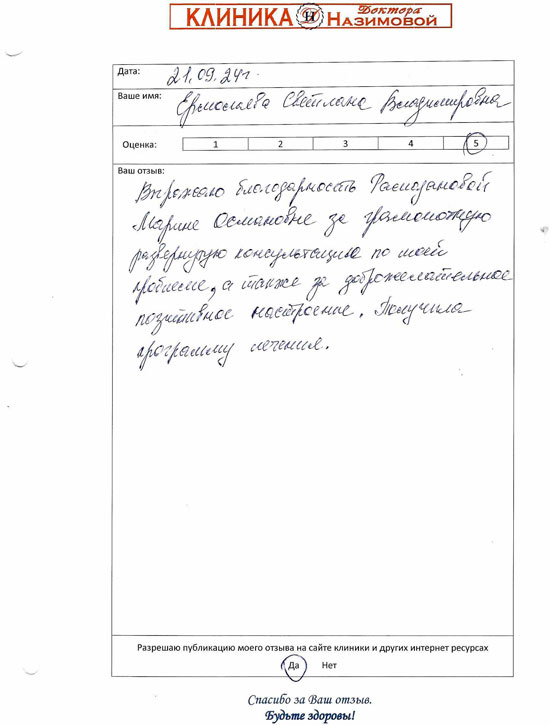 КЛИНИКА Доктора Назимовой
Дата: 21.09.24г.
Ваше имя: Ермолаева Светлана Владимировна
Оценка: 1 2 3 4 5
Ваш отзыв:
Выражаю благодарность
Марине Османовне за грамотную
развернутую консультацию по моей
проблеме, а также за доброжелательное
позитивное настроение. Получила
программу лечения.
Разрешаю публикацию моего отзыва на сайте клиники и других интернет ресурсах
Да Нет
Спасибо за Ваш отзыв.
Будьте здоровы!